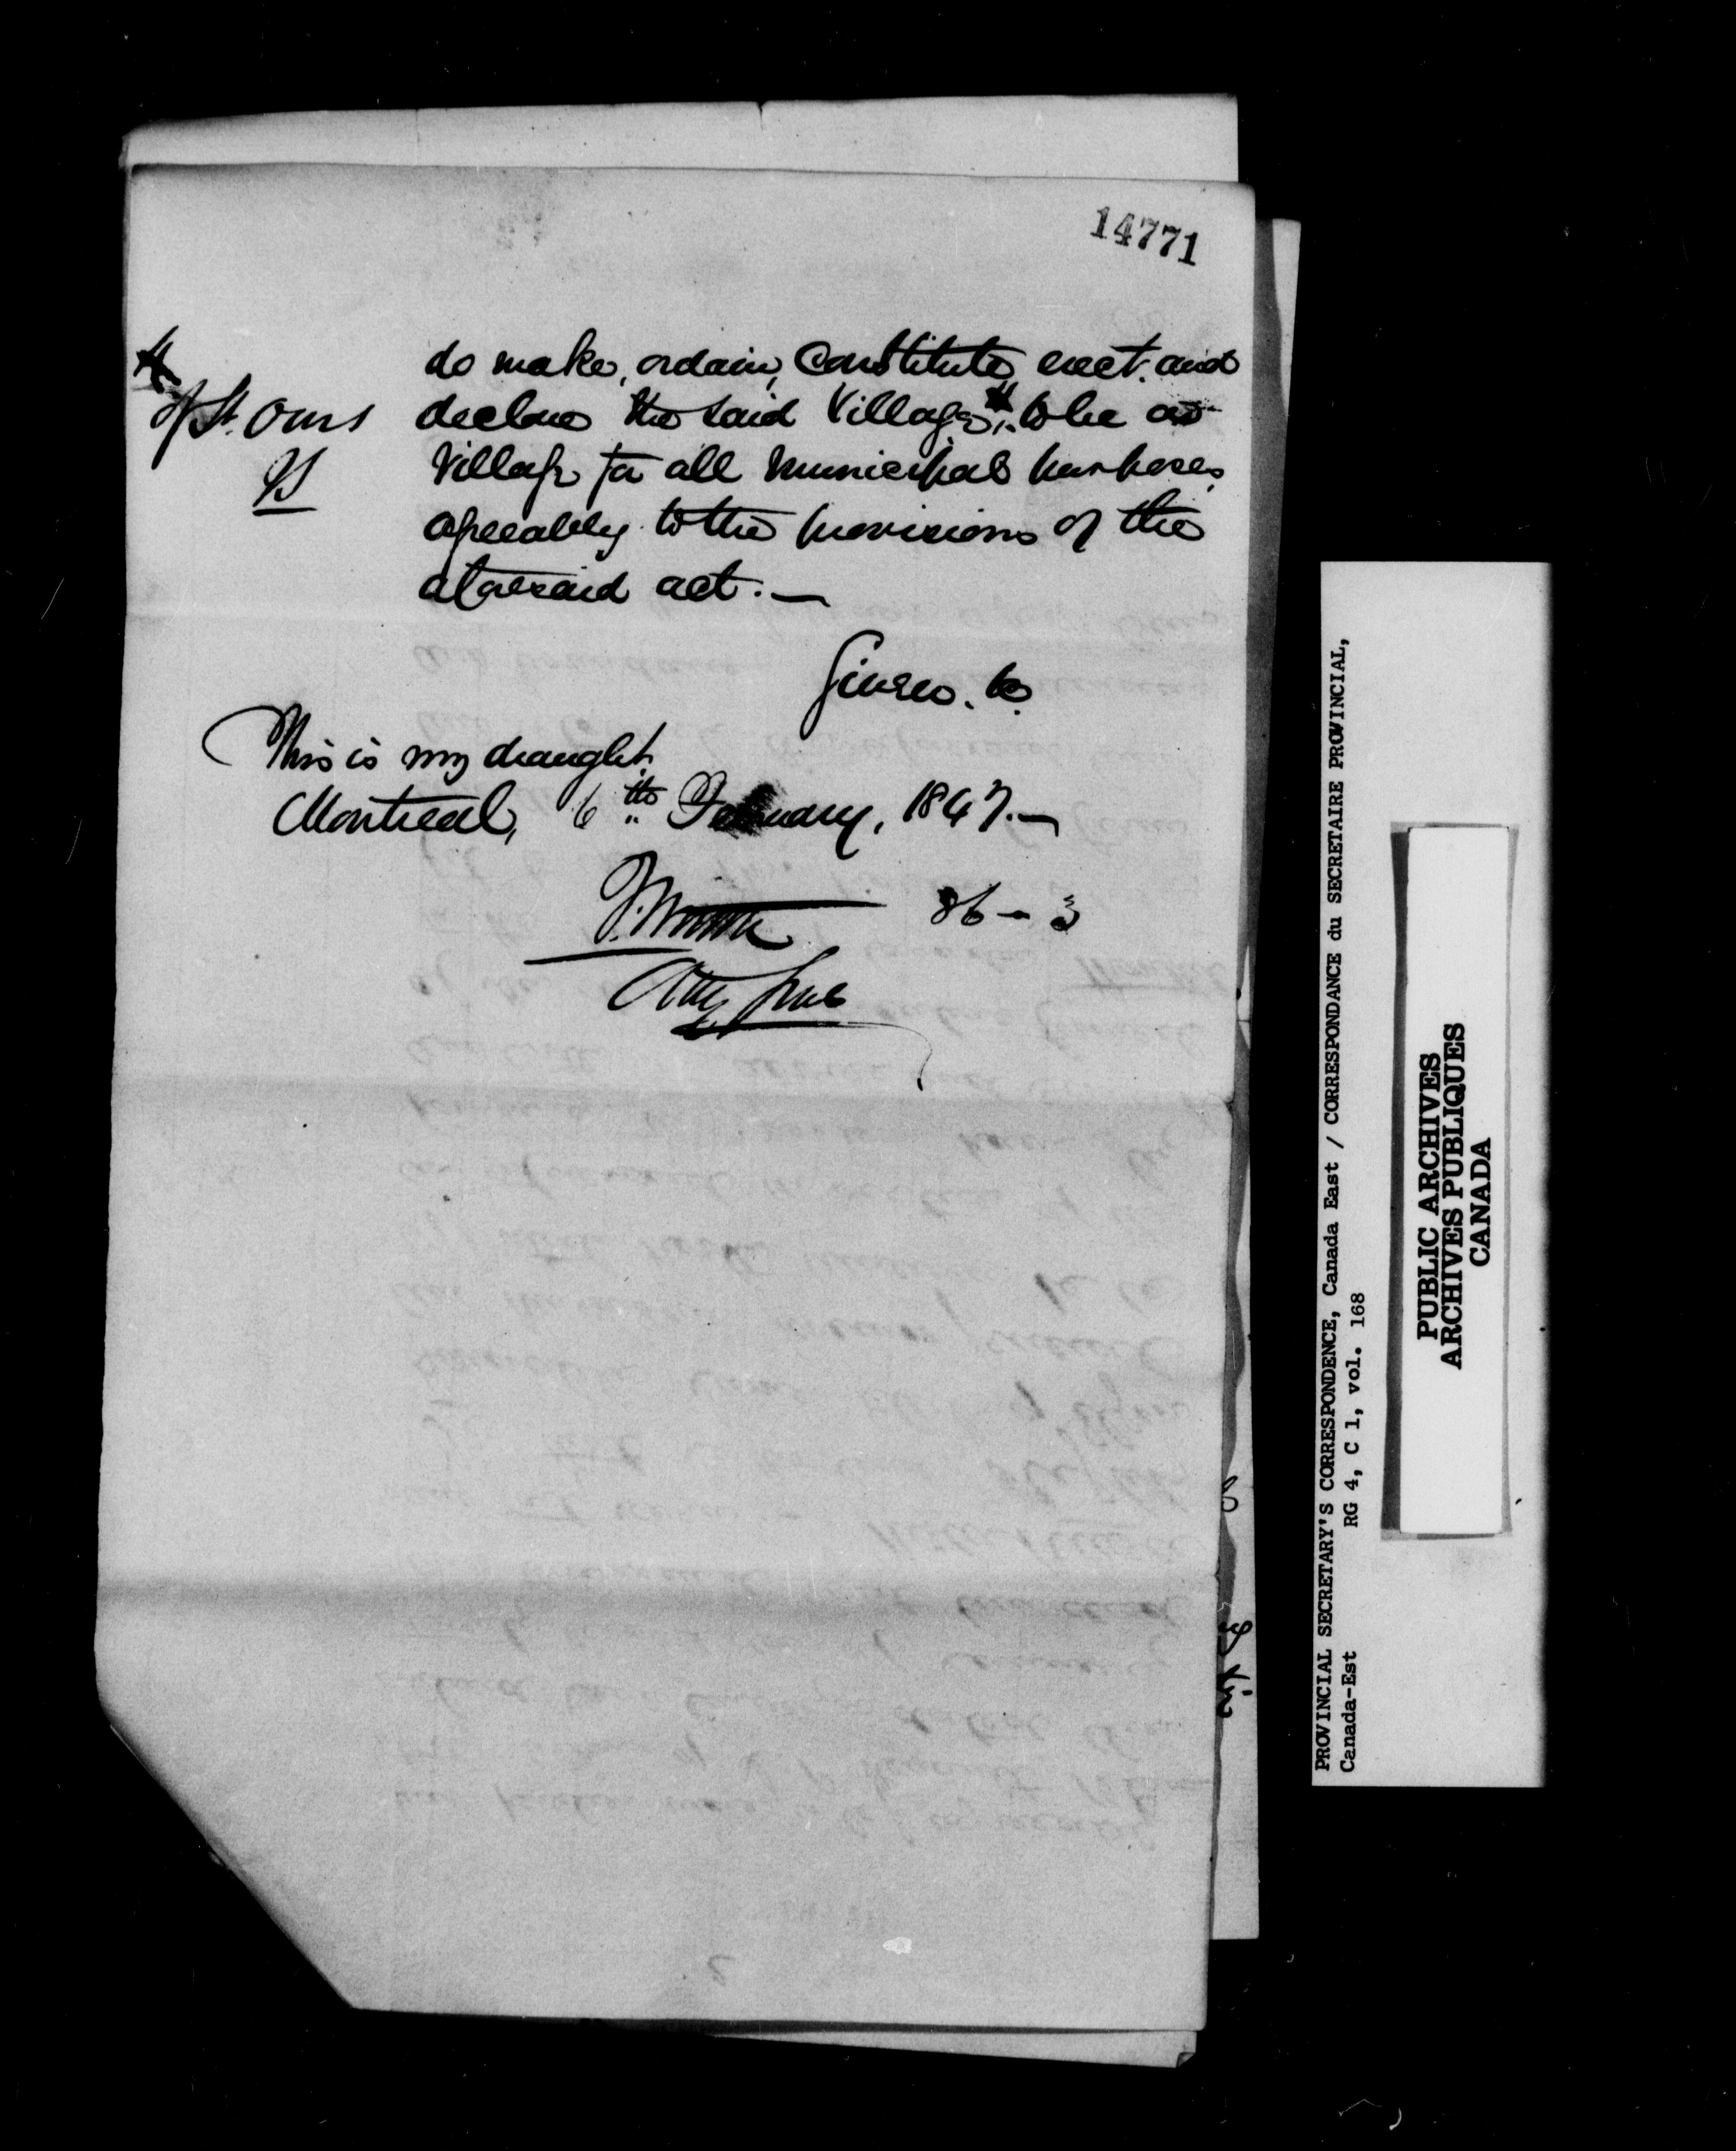 14771
do make, ordain, Constitute, erect, and
declare the said Village # to be a
Village for all Municipal purposes,
agreeably to the provisions of the
aforesaid act. —
#
of St. Ours
Given. &c.
This is my draught.
Montreal, 6th February, 1847. —
86 - 3
Atty Genl
PROVINCIAL SECRETARY'S CORRESPONDENCE, Canada East / CORRESPONDANCE du SECRETAIRE PROVINCIAL,
Canada-Est
RG 4, C 1, vol. 168
PUBLIC ARCHIVES
ARCHIVES PUBLIQUES
CANADA